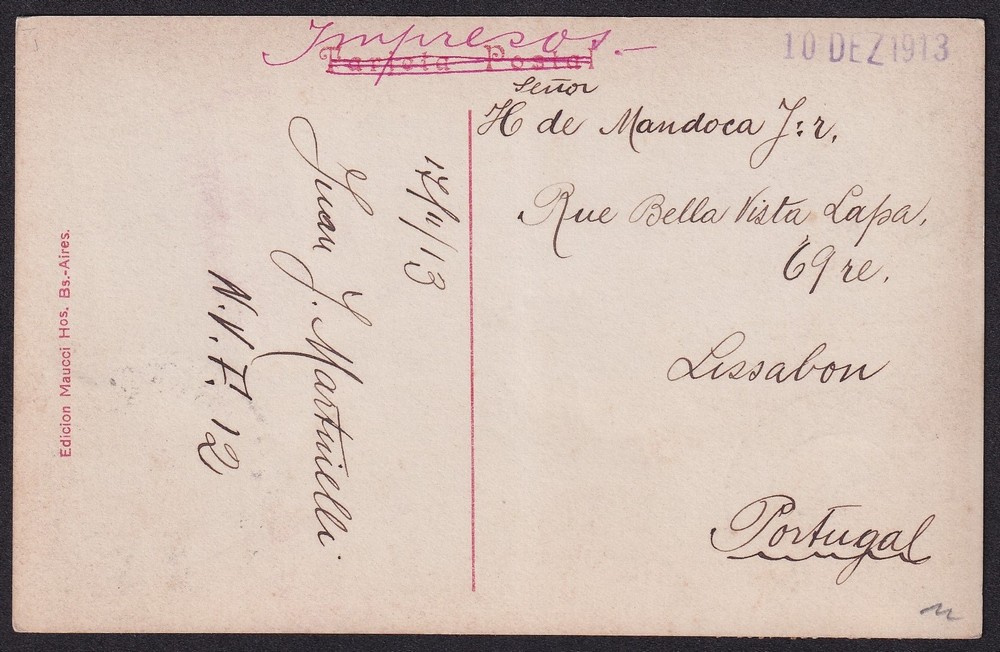 Impresos.-
Tarjeta Postal
10 DEZ 1913
Señor
H de Mandoca J:r.
Rue Bella Vista Lapa,
69 re.
Lissabon
Portugal
17/11/13
Juan J. Martinelli.
N.V.F. 12
Edicion Maucci Hos. Bs.-Aires.